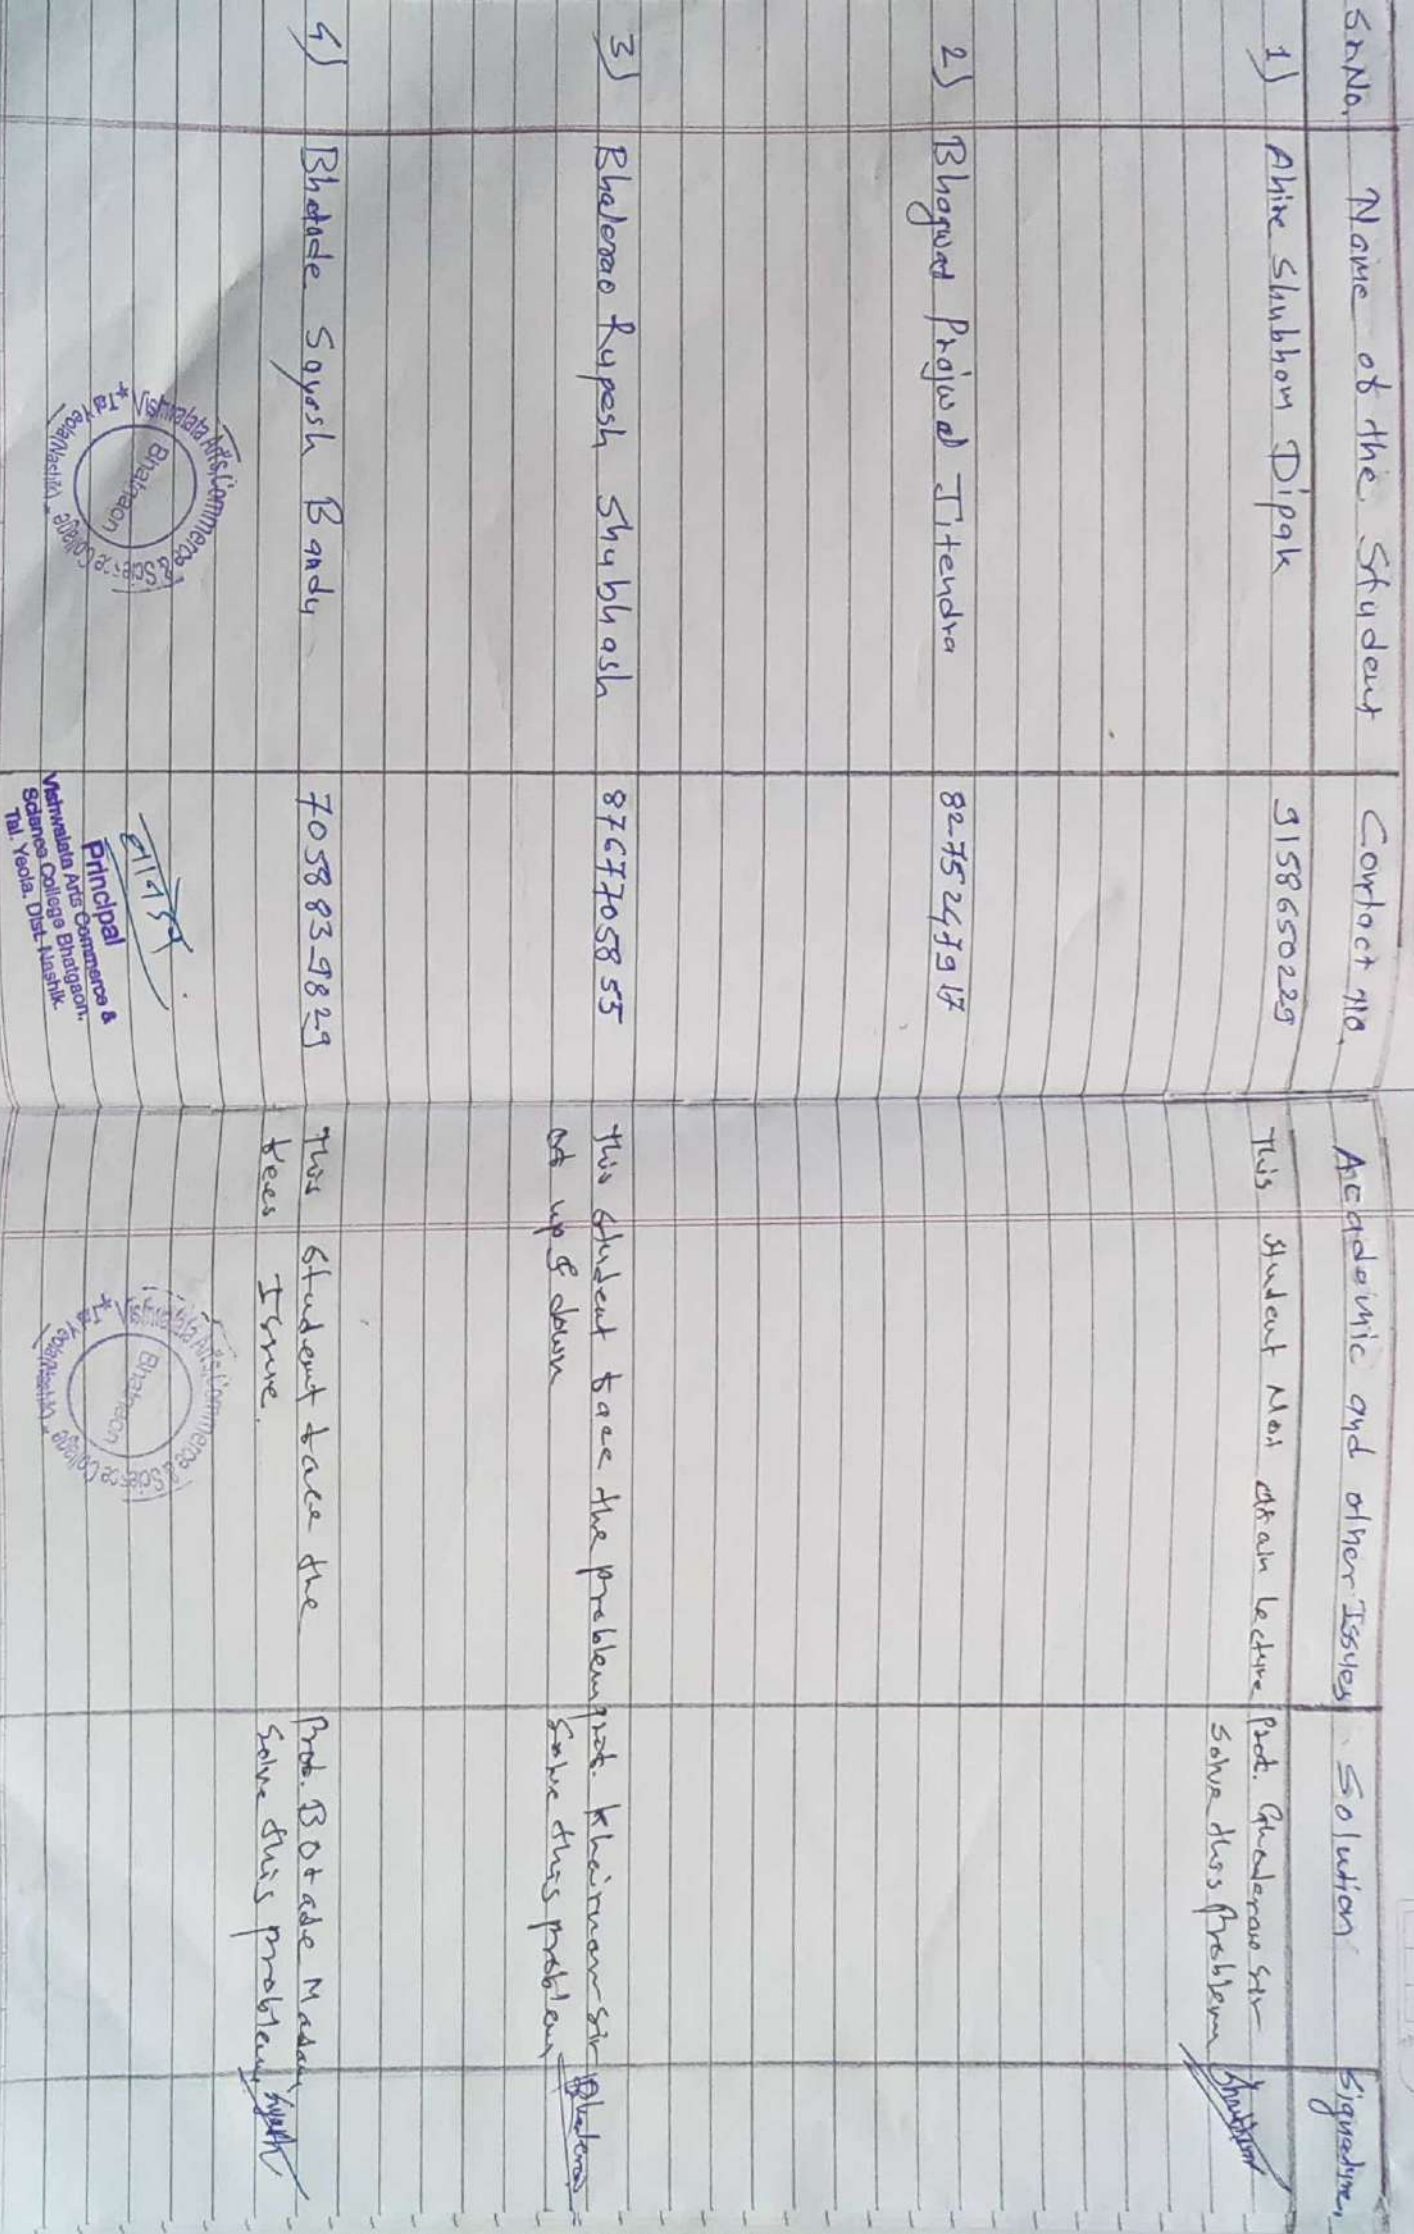 Sr.No. Name of the Student Contact no. Acadeimic and other Issues Solution Signature
1) Ahire Shubham Dipak 9158650229 This student Not attain lecture Prof. Ghaderao sir
solve this problem
2) Bhagwat Prajwal Jitendra
3) Bhalerao Rupesh Shubhash 8767705855 this student face the problem prof. Khairnar sir Bhalerao
of up & down solve this problem
4) Bhatode Sayash Bandu 7058839829 This student face the Prof. Botade Madam
fees Issue. solve this problem
Vishwalata Arts, Commerce & Science College * Tal Yeola (Nashik)
Bhatgaon
Principal
Vishwalata Arts Commerce &
Science College Bhatgaon.
Tal. Yeola. Dist. Nashik.
Vishwalata Arts, Commerce & Science College * Tal Yeola (Nashik)
Bhatgaon